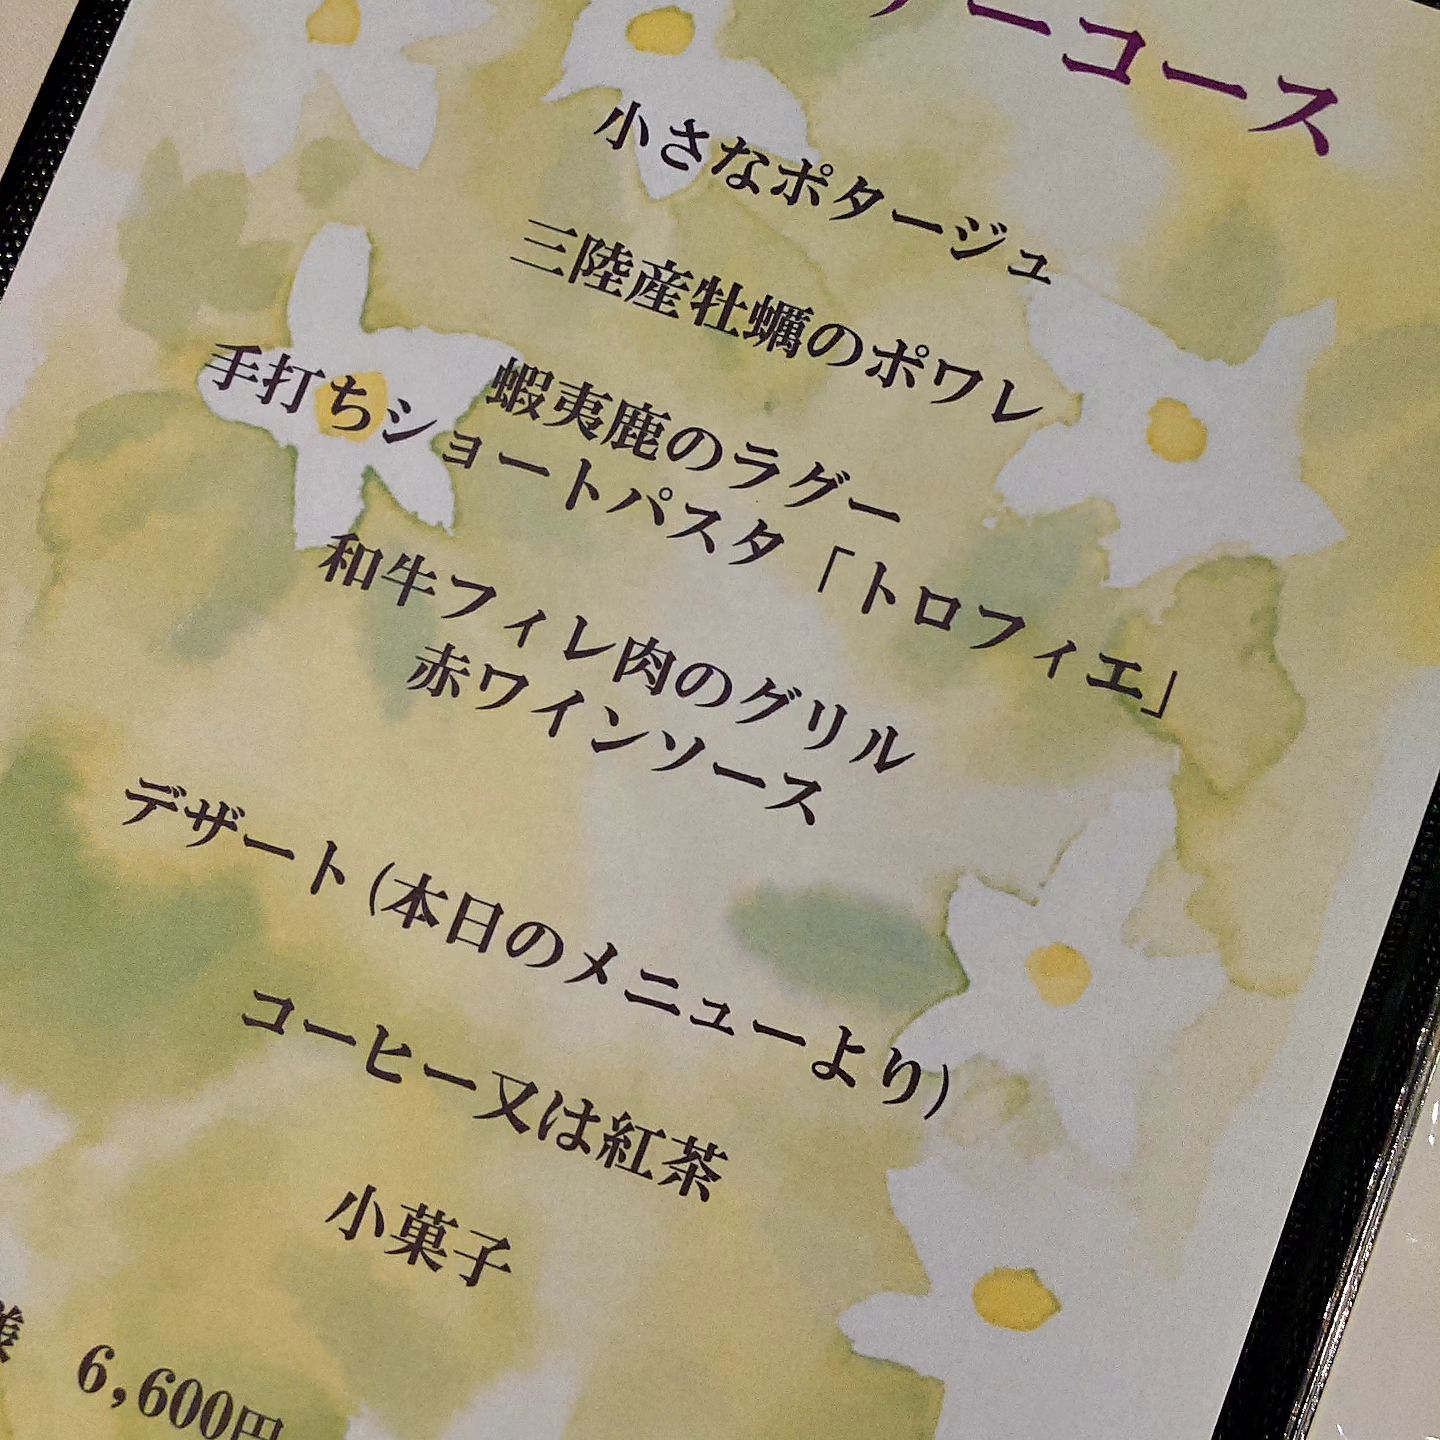 ーコース
小さなポタージュ
三陸産牡蠣のポワレ
蝦夷鹿のラグー
手打ちショートパスタ「トロフィエ」
和牛フィレ肉のグリル
赤ワインソース
デザート(本日のメニューより)
コーヒー又は紅茶
小菓子
様 6,600円